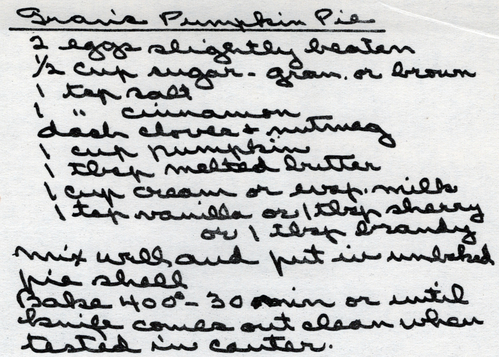 Gran's Pumpkin Pie
2 eggs slightly beaten
1/2 cup sugar - gran. or brown
1 tsp salt
1 " cinnamon
dash cloves + nutmeg
1 cup pumpkin
1 tbsp melted butter
1 cup cream or evap. milk
1 tsp vanilla or 1 tbsp sherry
or 1 tbsp brandy
Mix well and put in unbaked
pie shell
Bake 400° - 30 min or until
knife comes out clean when
tested in center.